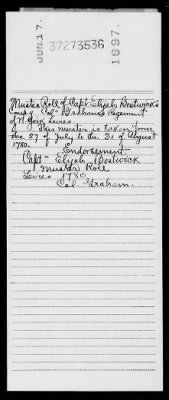 JUN 17.
37273536
1897.
Muster Roll of Capt. Elijah Bostwick's
Comp'y Col. Graham's Regiment
of N. York Levies
This muster is taken from
the 27 of July to the 31 of August
1780.
Endorsement.
Capt Elijah Bostwick
Muster Roll
Levies 1780
Col Graham.